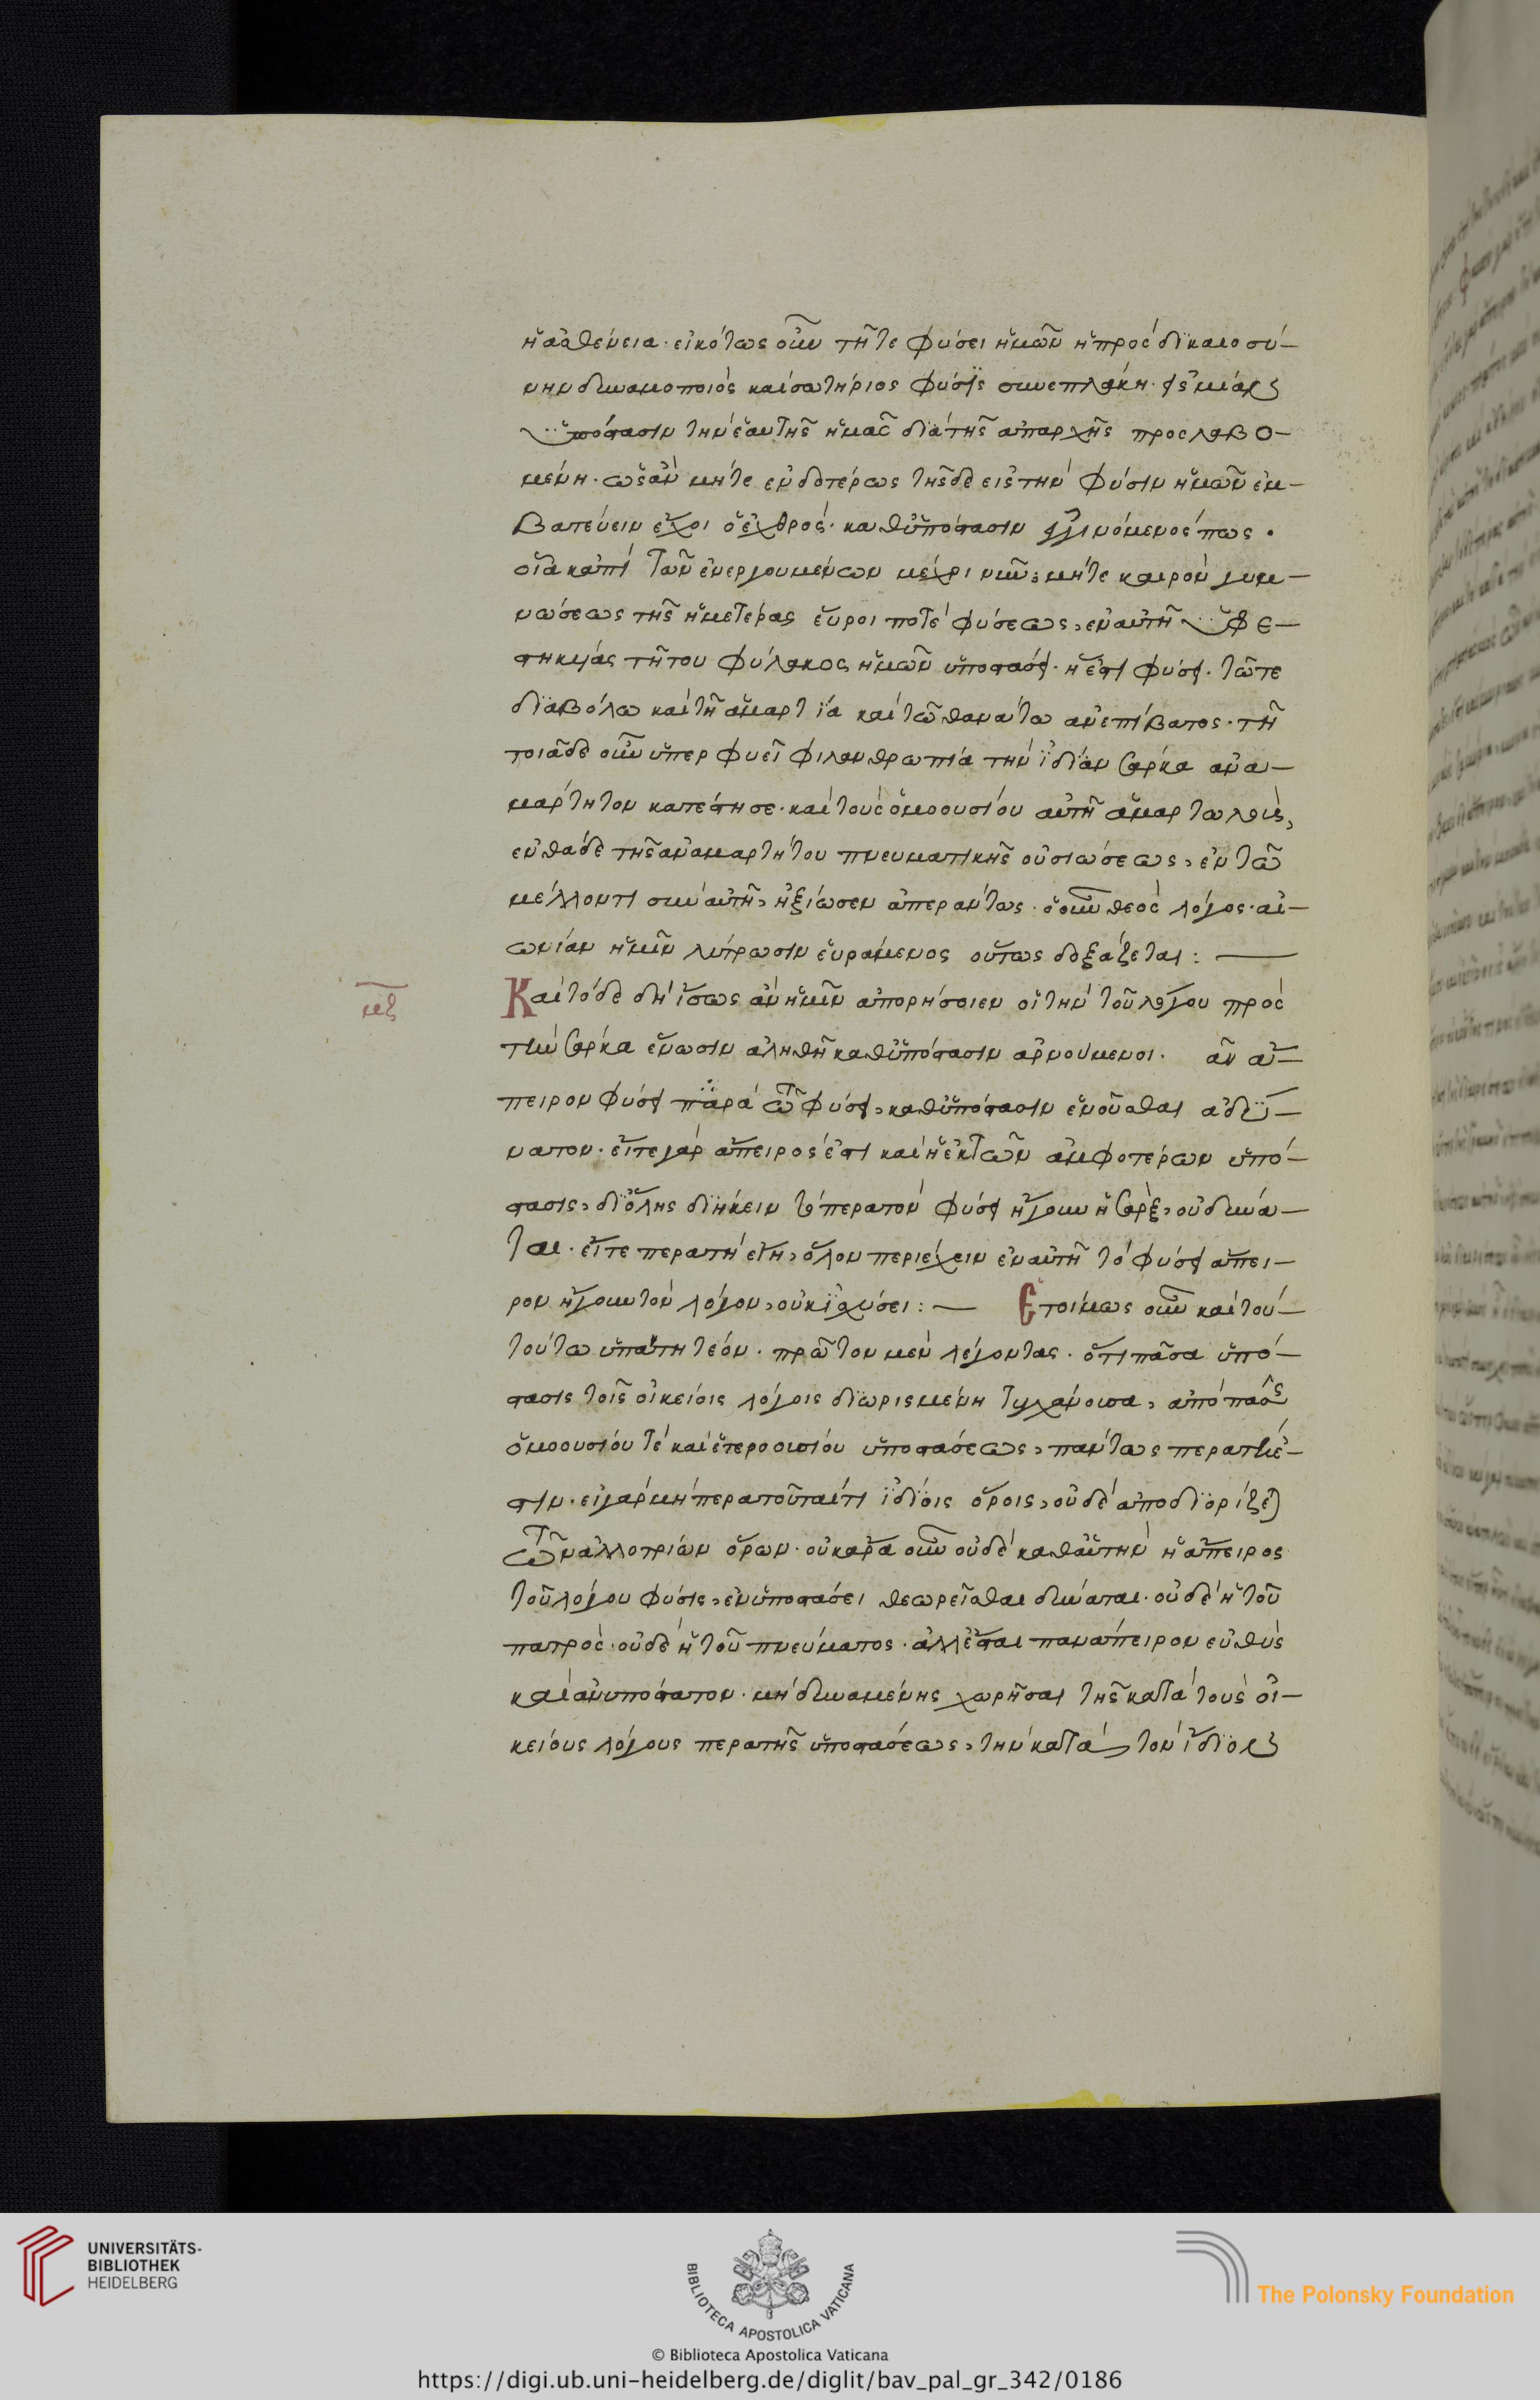 ἡ ἀσθένεια· εἰκότως οὖν τῆ τε φύσει ἡμῶν ἡ πρὸς δικαιοσύ-
νην δυναμοποιὸς καὶ σωτήριος φύσις συνεπλάκη· εἰς μίαν
ὑπόστασιν τὴν ἑαυτῆς ἡμᾶς διὰ τῆς ἀπαρχῆς προσλαβο-
μένη· ὡς ἂν μήτε ἐνδοτέρως τῆσδε εἰς τὴν φύσιν ἡμῶν ἐμ-
βατεύειν ἔχοι ὁ ἐχθρός· καθ' ὑπόστασιν γινόμενός πως·
οἷα κἀπὶ τῶν ἐνεργουμένων μέχρι νῦν· μήτε καιρὸν γυμ-
νώσεως τῆς ἡμετέρας εὕροι ποτὲ φύσεως, ἐν αὐτῆ ὑφε-
στηκυίας τῆ του φύλακος ἡμῶν ὑποστάσει· ἥ ἐστι φύσει· τῶ τε
διαβόλω καὶ τῆ ἁμαρτία καὶ τῶ θανάτω ἀνεπίβατος· τῆ
τοιᾶδε οὖν ὑπερφυεῖ φιλανθρωπία τὴν ἰδίαν σάρκα ἀνα-
μάρτητον κατέστησε· καὶ τοὺς ὁμοουσίου αὐτῆ ἁμαρτωλοὺς,
ἐνθάδε τῆς ἀναμαρτήτου πνευματικῆς οὐσιώσεως, ἐν τῶ
μέλλοντι σὺν αὐτῆ, ἠξίωσεν ἀπεράντως· ὁ οὖν θεὸς λόγος· αἰ-
ωνίαν ἡμῖν λύτρωσιν εὑράμενος οὕτως δοξάζεται: —
μζ
Καὶ τόδε δὴ ἴσως ἂν ἡμῖν ἀπορήσοιεν οἱ τὴν τοῦ λόγου πρὸς
τὴν σάρκα ἕνωσιν ἀληθῆ καθ' ὑπόστασιν ἀρνούμενοι. ἂν ἄ-
πειρον φύσει παρὰ τῶ φύσει, καθ' ὑπόστασιν ἑνοῦσθαι ἀδύ-
νατον· εἴτε γὰρ ἄπειρός ἐστι καὶ ἡ ἐκ τῶν ἀμφοτέρων ὑπό-
στασις, δι' ὅλης διήκειν τὸ περατὸν φύσει ἤγουν ἡ σὰρξ, οὐ δύνα-
ται· εἴτε περατὴ εἴη, ὅλον περιέχειν ἐν αὐτῆ τὸ φύσει ἄπει-
ρον ἤγουν τὸν λόγον, οὐκ ἰσχύσει: — Ἑτοίμως οὖν καὶ τού-
τούτω ὑπαντητέον· πρῶτον μὲν λέγοντας· ὅτι πᾶσα ὑπό-
στασις τοῖς οἰκείοις λόγοις διωρισμένη τυγχάνουσα, ἀπὸ πάσης
ὁμοουσίου τὲ καὶ ἑτεροουσίου ὑποστάσεως, πάντως περατή ἐ-
στιν· εἰ γὰρ μὴ περατοῦταί τι ἰδίοις ὅροις, οὐδὲ ἀποδιορίζεται
τῶν ἀλλοτρίων ὅρων· οὐκ ἄρα οὖν οὐδὲ καθ' αὑτὴν ἡ ἄπειρος
τοῦ λόγου φύσις, ἐν ὑποστάσει θεωρεῖσθαι δύναται· οὐδὲ ἡ τοῦ
πατρὸς· οὐδὲ ἡ τοῦ πνεύματος· ἀλλ' ἔσται πανάπειρον εὐθὺς
καὶ ἀνυπόστατον· μὴ δυναμένης χωρῆσαι τῆς κατὰ τοὺς οἰ-
κείους λόγους περατῆς ὑποστάσεως, τὴν κατὰ τὸν ἴδιον
UNIVERSITÄTS-
BIBLIOTHEK
HEIDELBERG
BIBLIOTECA APOSTOLICA VATICANA
The Polonsky Foundation
© Biblioteca Apostolica Vaticana
https://digi.ub.uni-heidelberg.de/diglit/bav_pal_gr_342/0186